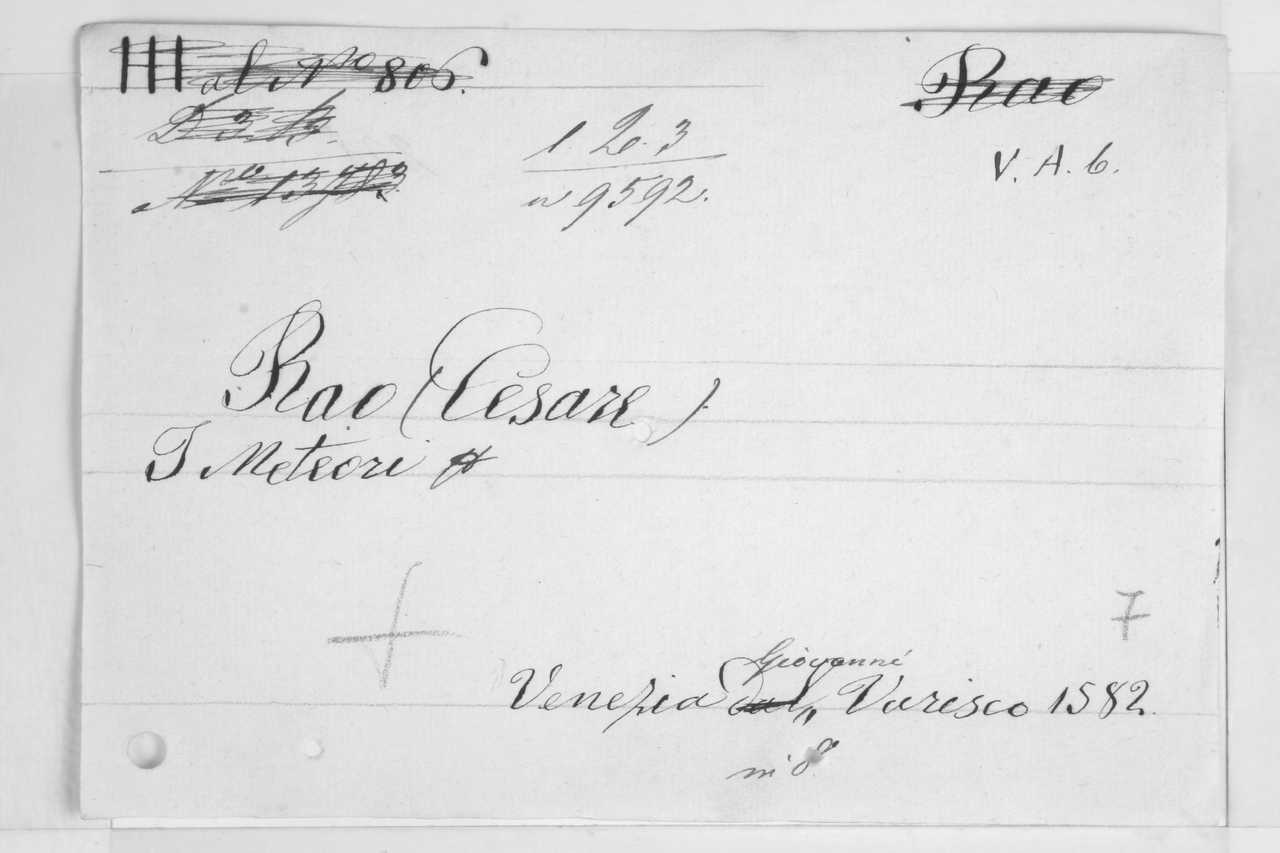 III al No 806.
Rao
1. 2. 3
n 9592.
V. A. 6.
Rao (Cesare)
I Meteori
Giovanni
Venezia dal „ Varisco 1582.
in 8°
7